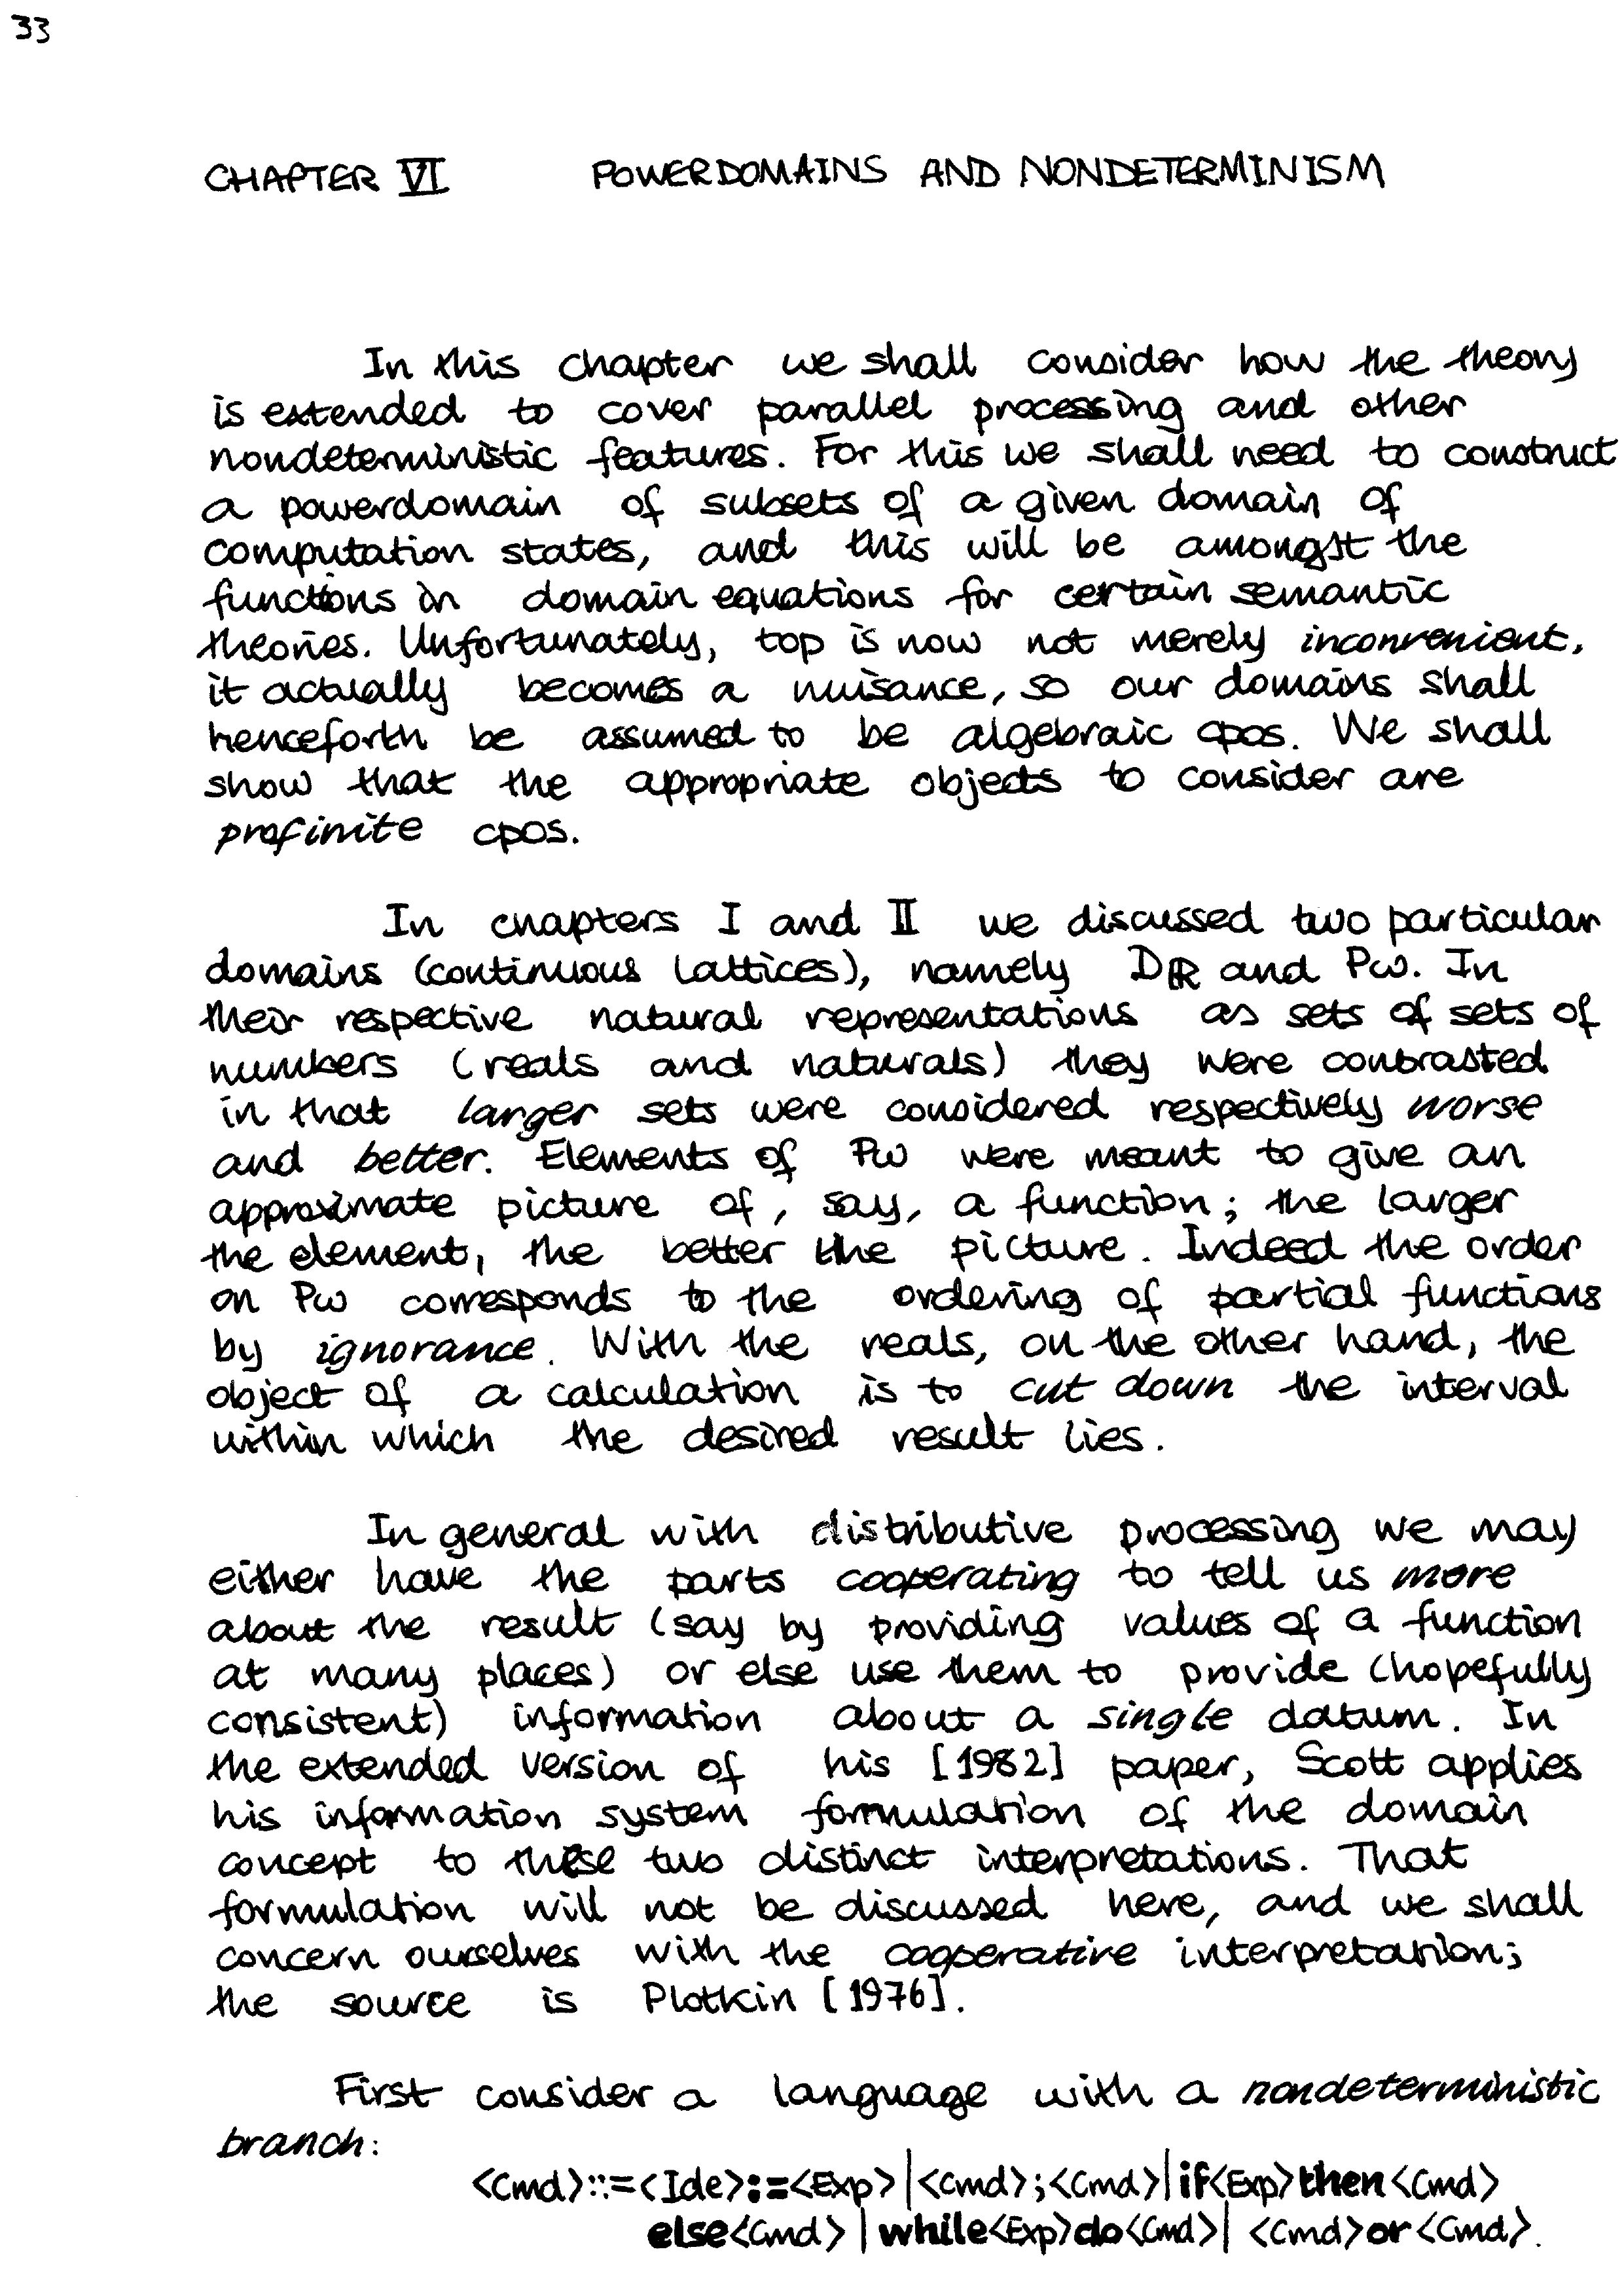 33
CHAPTER VI POWERDOMAINS AND NONDETERMINISM
In this chapter we shall consider how the theory
is extended to cover parallel processing and other
nondeterministic features. For this we shall need to construct
a powerdomain of subsets of a given domain of
computation states, and this will be amongst the
functions in domain equations for certain semantic
theories. Unfortunately, top is now not merely inconvenient,
it actually becomes a nuisance, so our domains shall
henceforth be assumed to be algebraic cpos. We shall
show that the appropriate objects to consider are
profinite cpos.
In chapters I and II we discussed two particular
domains (continuous lattices), namely Dℝ and Pω. In
their respective natural representations as sets of sets of
numbers (reals and naturals) they were contrasted
in that larger sets were considered respectively worse
and better. Elements of Pω were meant to give an
approximate picture of, say, a function; the larger
the element, the better the picture. Indeed the order
on Pω corresponds to the ordering of partial functions
by ignorance. With the reals, on the other hand, the
object of a calculation is to cut down the interval
within which the desired result lies.
In general with distributive processing we may
either have the parts cooperating to tell us more
about the result (say by providing values of a function
at many places) or else use them to provide (hopefully
consistent) information about a single datum. In
the extended version of his [1982] paper, Scott applies
his information system formulation of the domain
concept to these two distinct interpretations. That
formulation will not be discussed here, and we shall
concern ourselves with the cooperative interpretation;
the source is Plotkin [1976].
First consider a language with a nondeterministic
branch:
<Cmd>::=<Ide>:=<Exp>|<Cmd>;<Cmd>|if<Exp>then<Cmd>
else<Cmd>|while<Exp>do<Cmd>|<Cmd>or<Cmd>.